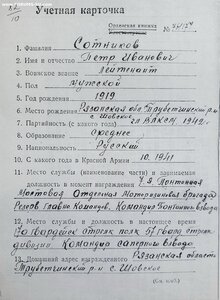 Учетная карточка
Орденская книжка
1. Фамилия Сотников
2. Имя и отчество Петр Иванович
3. Воинское звание лейтенант
4. Пол мужской
5. Год рождения 1919
6. Место рождения Рязанская обл Трубетчинский р-н
с Шовское
7. Партийность (с какого года) чл ВЛКСМ 1942 г.
8. Образование среднее
9. Национальность Русский
10. С какого года в Красной Армии 10.1941
11. Место службы (наименование части) и занимаемая
должность к момент награждения 7-я Понтонная
Мостовая Отдельная Моторизованная бригада
Резерв Главн Командов. Командир Понтонн взвода
12. Место службы и должность в настоящее время
гвардейск стрелк полк гвард стрелк
дивизии Командир саперн взвода
13. Домашний адрес награжденного Рязанская область
Трубетчинский р-н с. Шовское